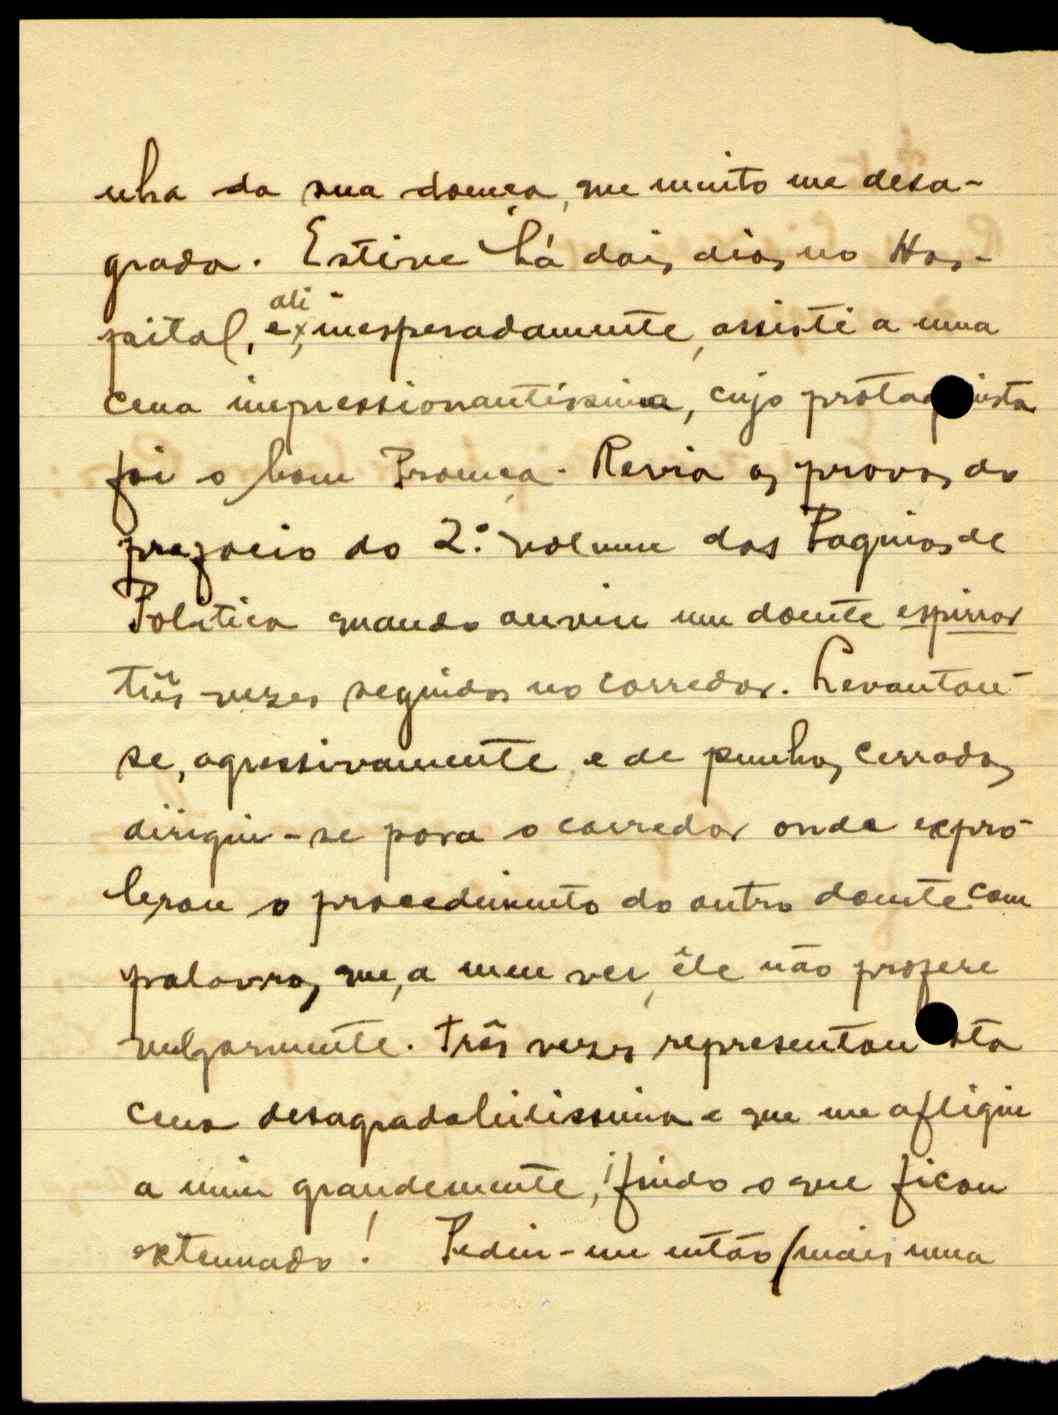 nha da sua doença, que muito me desa-
grada. Estive há dois dias no Hos-
pital, e, ali inesperadamente, assisti a uma
cena impressionantíssima, cujo protag nista
foi o bom Proença. Revia as provas do
prefacio do 2.º volume das Paginas de
Politica quando ouviu um doente espirrar
três vezes seguidas no corredor. Levantou-
se, agressivamente, e de punhos cerrados
dirigiu-se para o corredor onde expro-
brou o procedimento do outro doente com
palavras que, a meu ver, êle não profere
vulgarmente. Três vezes representou sta
cena desagradabilissima e que me afligiu
a mim grandemente, findo o que ficou
extenuado! Pediu-me então (mais uma